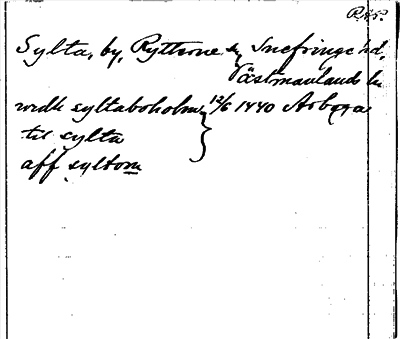 RAp.
Sylta, by, Rytterne sn, Snefringe hd,
Västmanlands l.
widh syltaboholm } 12/6 1440 Arboga
til sylta
aff syltom